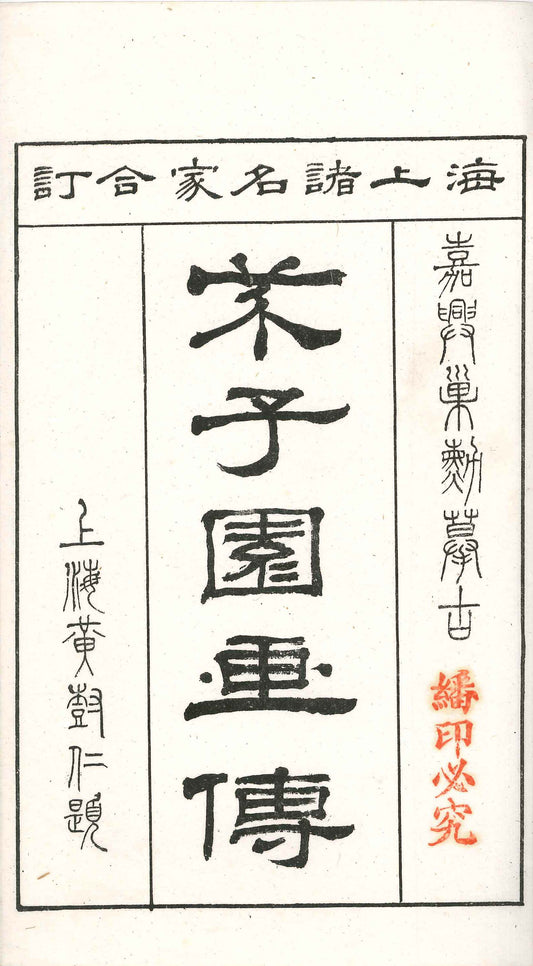 海上諸名家合訂
嘉興巢勳摹古
繙印必究
芥子園畫傳
上海黃鼓仁題